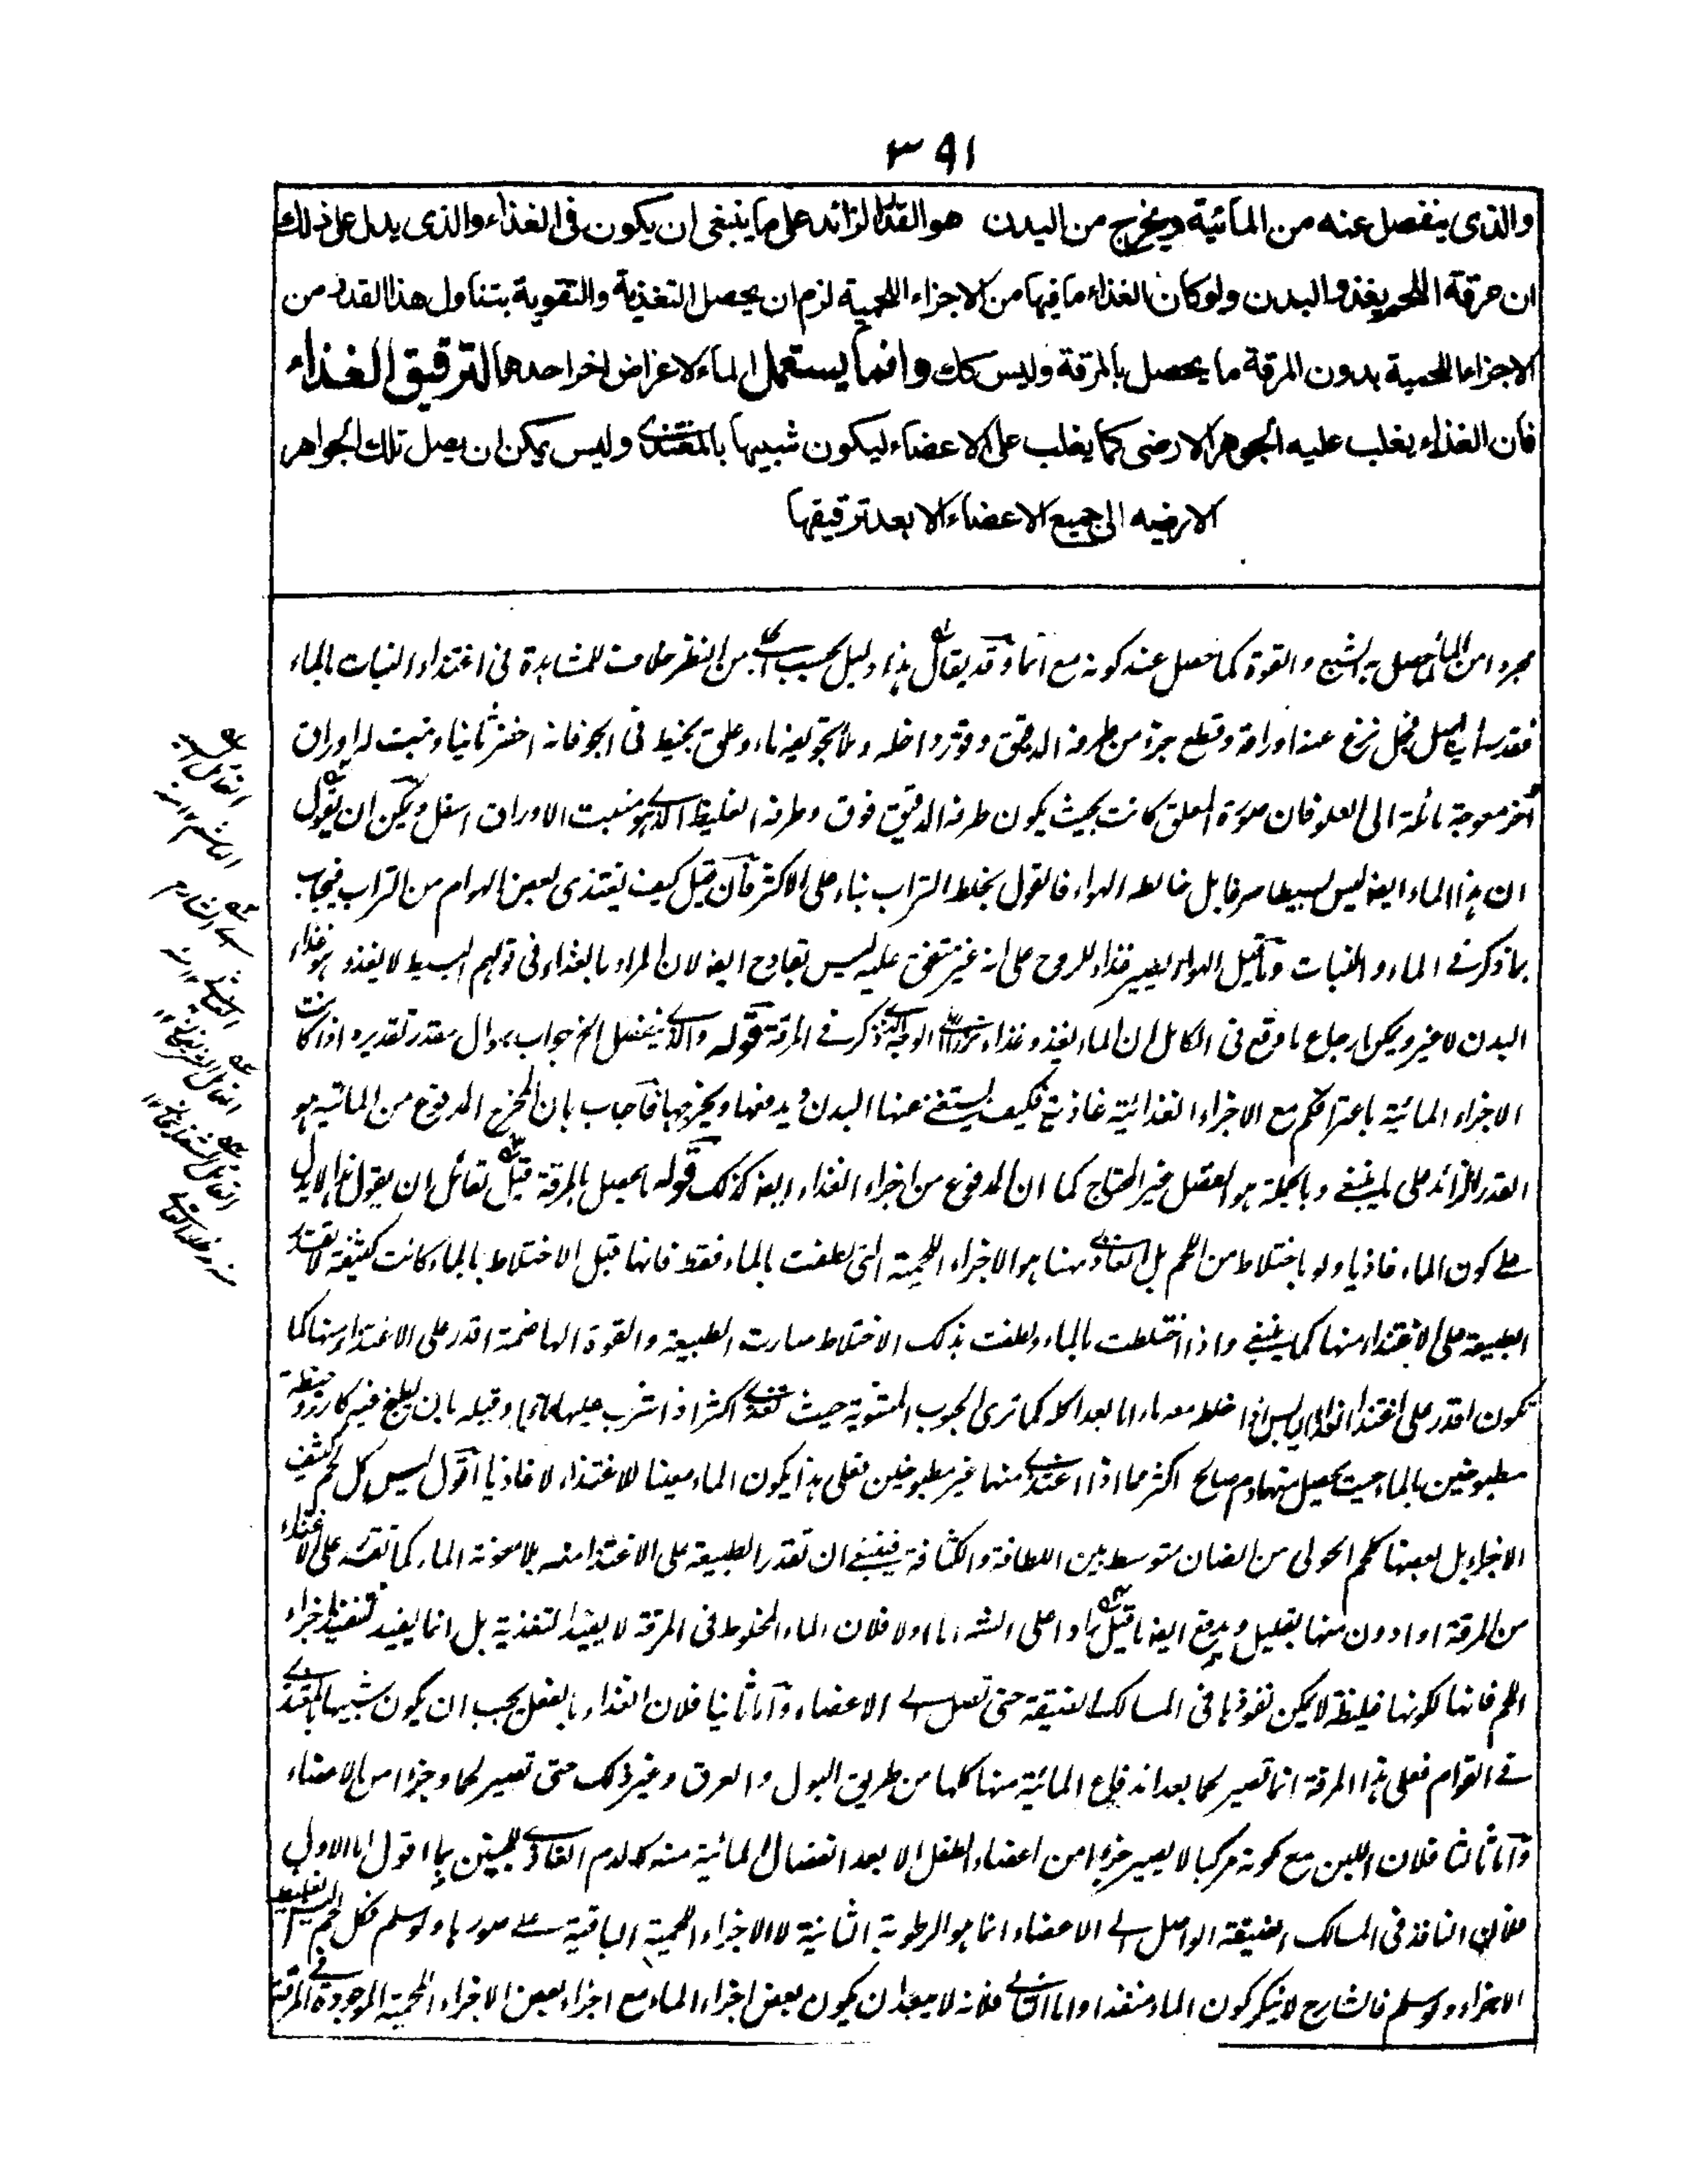 ٣٩١
والذى ينفصل عنه من المائية ويخرج من البدن هو القدر الزائد على ما ينبغى ان يكون فى الغذاء والذى يدل على ذلك
ان مرقة اللحم يغذو البدن ولو كان الغذاء ما فيها من الاجزاء اللحمية لزم ان يحصل التغذية والتقوية بتناول هذا القدر من
الاجزاء اللحمية بدون المرقة ما يحصل بالمرقة وليس كك وانما يستعمل الماء لاغراض اخر احدها لترقيق الغذاء
فان الغذاء يغلب عليه الجوهر الارضى كما يغلب على الاعضاء ليكون شبيها بالمغتذى وليس يمكن ان يصل تلك الجواهر
الارضيه الى جميع الاعضاء الا بعد ترقيقها
مجردا من الماء حصل به الشبع والقوة كما حصل عند كونه مع الماء وقد يقال هذا دليل بحسب من النظر خلاف للمشاهدة فى اغتذاء النبات بالماء
فقد اصل فجل نزع عنه اوراقه وقطع جزء من طرفه الدقيق وقور داخله وملأ تجويفه ماء وعلق بخيط فى الجو فانه اخضر ثانيا ونبت له اوراق
أخر معوجة مائلة الى العلو فان صورة المعلق كانت بحيث يكون طرفه الدقيق فوق وطرفه الغليظ الذى هو منبت الاوراق اسفل ويمكن ان يقول
ان هذا الماء ايضا ليس بسيطا صرفا بل خالطه الهواء فالقول بخلط التراب بناء على الاكثر فان قيل كيف يغتذى بعض الهوام من التراب فيجاب
بما ذكر فى الماء والنبات وما قيل الهواء يصير غذاء للروح على انه غير متفق عليه ليس بقادح ايضا لان المراد بالغذاء فى قولهم البسيط لا يغذو هو غذاء
البدن لا غير ويمكن ارجاع ما وقع فى الكامل ان الماء يغذو غذاء الى الوجه الذى ذكر فى المرقة قوله والذى ينفصل الخ جواب سوال مقدر تقديره اذا كانت
الاجزاء المائية باعترافكم مع الاجزاء الغذائية غاذية فكيف يستغنى عنها البدن ويدفعها ويخرجها فاجاب بان المخرج المدفوع من المائية هو
القدر الزائد على ما ينبغى وبالجملة هو الفضل غير المحتاج كما ان المدفوع من اجزاء الغذاء ايضا كذلك قوله ما يحصل بالمرقة قيل لقائل ان يقول هذا لا يدل
على كون الماء غاذيا ولو باختلاط من اللحم بل الغاذى ههنا هو الاجزاء اللحمية التى لطفت بالماء فقط فانها قبل الاختلاط بالماء كانت كثيفة لا تقتدر
الطبيعة على الاغتذاء منها كما ينبغى واذا اختلطت بالماء ولطفت بذلك الاختلاط صارت الطبيعة والقوة الهاضمة اقدر على الاغتذاء منها كما
تكون اقدر على اغتذاء الغذاء اليابس اذا خلط معه ماء اما بعد اكله كما ترى الحبوب المشوية حيث تغذى اكثر اذا شرب عليها الماء او قبله بان يطبخ فيه كارز وحنطة
مطبوخين بالماء حيث يحصل منهما دم صالح اكثر مما اذا اغتذى منها غير مطبوخين فعلى هذا يكون الماء معينا للاغتذاء لا غاذيا اقول ليس كل لحم كثيف
الاجزاء بل بعضها كلحم الحولى من الضان متوسط بين اللطافة والكثافة فينبغى ان تقدر الطبيعة على الاغتذاء منه بلا معونة الماء كما تقدر على الاغتذاء
من المرقة او ادون منها بقليل ويدفع ايضا ما قيل ايرادا على الشرح اما اولا فلان الماء المخلوط فى المرقة لا يفيد التغذية بل انما يفيد تنفيذ اجزاء
اللحم فانها لكونها غليظة لا يمكن نفوذها فى المسالك الضيقة حتى تصل الى الاعضاء واما ثانيا فلان الغذاء بالفعل يجب ان يكون شبيها بالمغتذى
فى القوام فعلى هذا المرقة انما تصير لحما بعد اندفاع المائية منها كلها من طريق البول والعرق وغير ذلك حتى تصير لحما وجزءا من الاعضاء
واما ثالثا فلان اللبن مع كونه مركبا لا يصير جزءا من اعضاء الطفل الا بعد انفصال المائية منه كالدم الغاذى للجنين اقول اما الاول
فلان النافذ فى المسالك الضيقة الواصل الى الاعضاء انما هو الرطوبة الثانية لا الاجزاء اللحمية الباقية على صورها ولو سلم فكل لحم ليس غليظ
الاجزاء ولو سلم فالشارح لا ينكر كون الماء منفذا واما الثانى فلانه لا يبعد ان يكون بعض اجزاء الماء مع اجزاء بعض الاجزاء اللحمية الموجودة فى المرقة